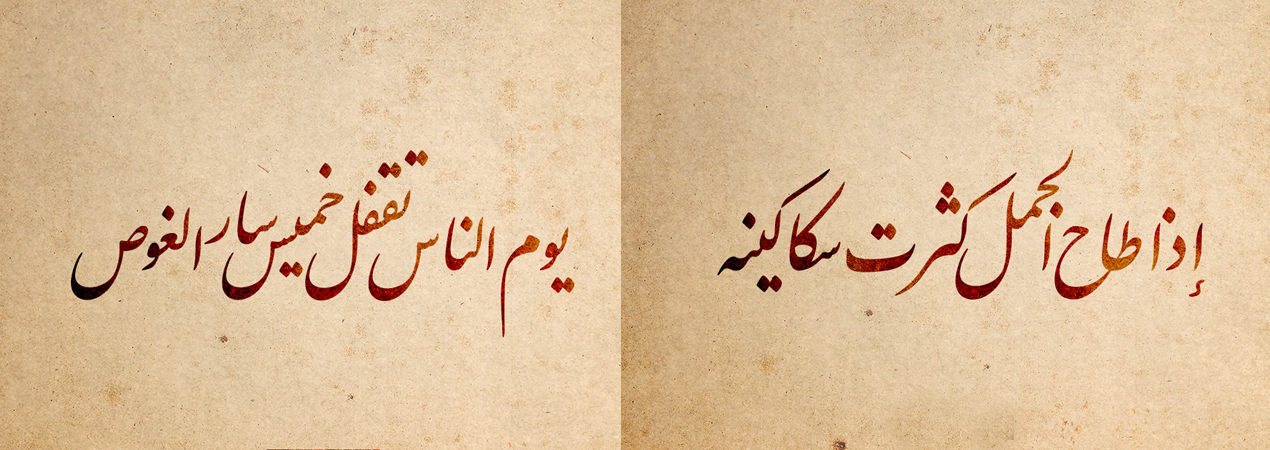 إذا طاح الجمل كثرت سكاكينه
يوم الناس تقفل خميس سار الغوص